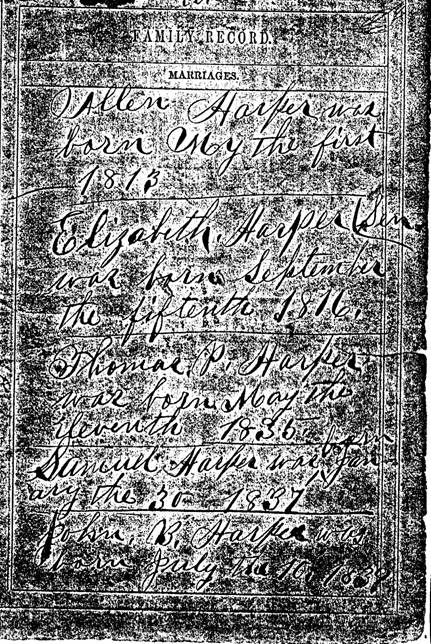 FAMILY RECORD.
MARRIAGES.
Allen Harper was
born May the first
1813
Elizabeth. Harper (Sen.
was born September
the fifteenth 1816.
Thomas, P, Harper
was born May the
eleventh 1835
born
Samuel Harper was Jan
ary the 30 1837
John, B, Harper was
born July the 10, 1839